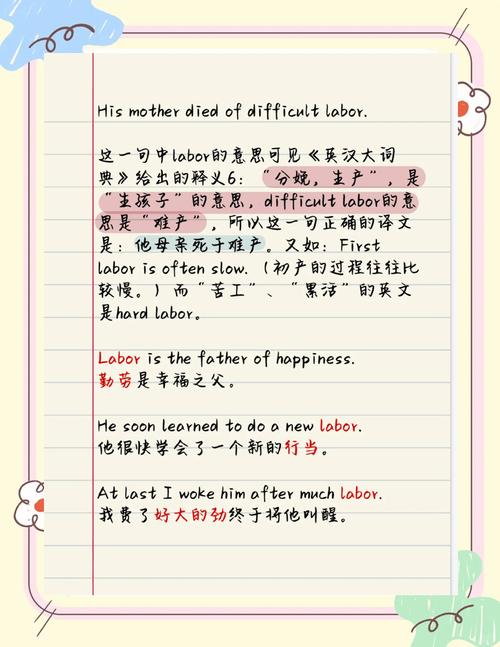 His mother died of difficult labor.
这一句中labor的意思可见《英汉大词
典》给出的释义6:“分娩,生产”,是
“生孩子”的意思,difficult labor的意
思是“难产”,所以这一句正确的译文
是:他母亲死于难产。又如:First
labor is often slow.(初产的过程往往比
较慢。)而“苦工”、“累活”的英文
是hard labor。
Labor is the father of happiness.
勤劳是幸福之父。
He soon learned to do a new labor.
他很快学会了一个新的行当。
At last I woke him after much labor.
我费了好大的劲终于将他叫醒。